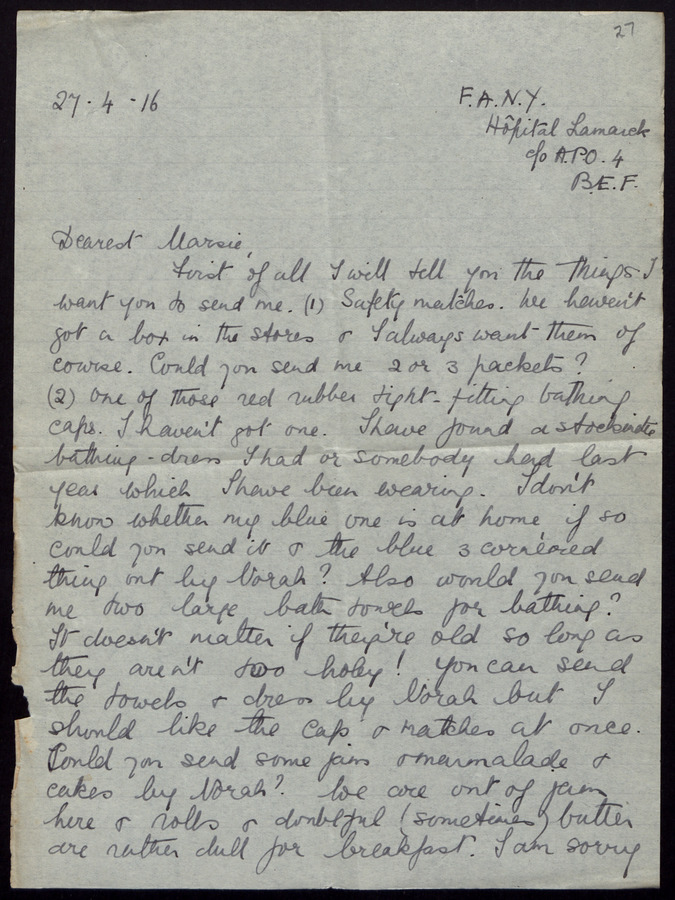 27
27 · 4 · 16
F.A.N.Y.
Hôpital Lamarck
c/o A.P.O. 4
B.E.F.
Dearest Marsie,
First of all I will tell you the things I
want you to send me. (1) Safety matches. We haven't
got a box in the stores & I always want them of
course. Could you send me 2 or 3 packets?
(2) One of those red rubber tight-fitting bathing
caps. I haven't got one. I have found a stockinette
bathing-dress I had or somebody had last
year which I have been wearing. I don't
know whether my blue one is at home if so
could you send it & the blue 3 cornered
thing out by Norah? Also would you send
me two large bath towels for bathing?
It doesn't matter if they're old so long as
they aren't too holey! You can send
the towels & dress by Norah but I
should like the cap & matches at once.
Could you send some jam & marmalade &
cakes by Norah? We are out of jam
here & rolls & doubtful (sometimes) butter
are rather dull for breakfast. I am sorry